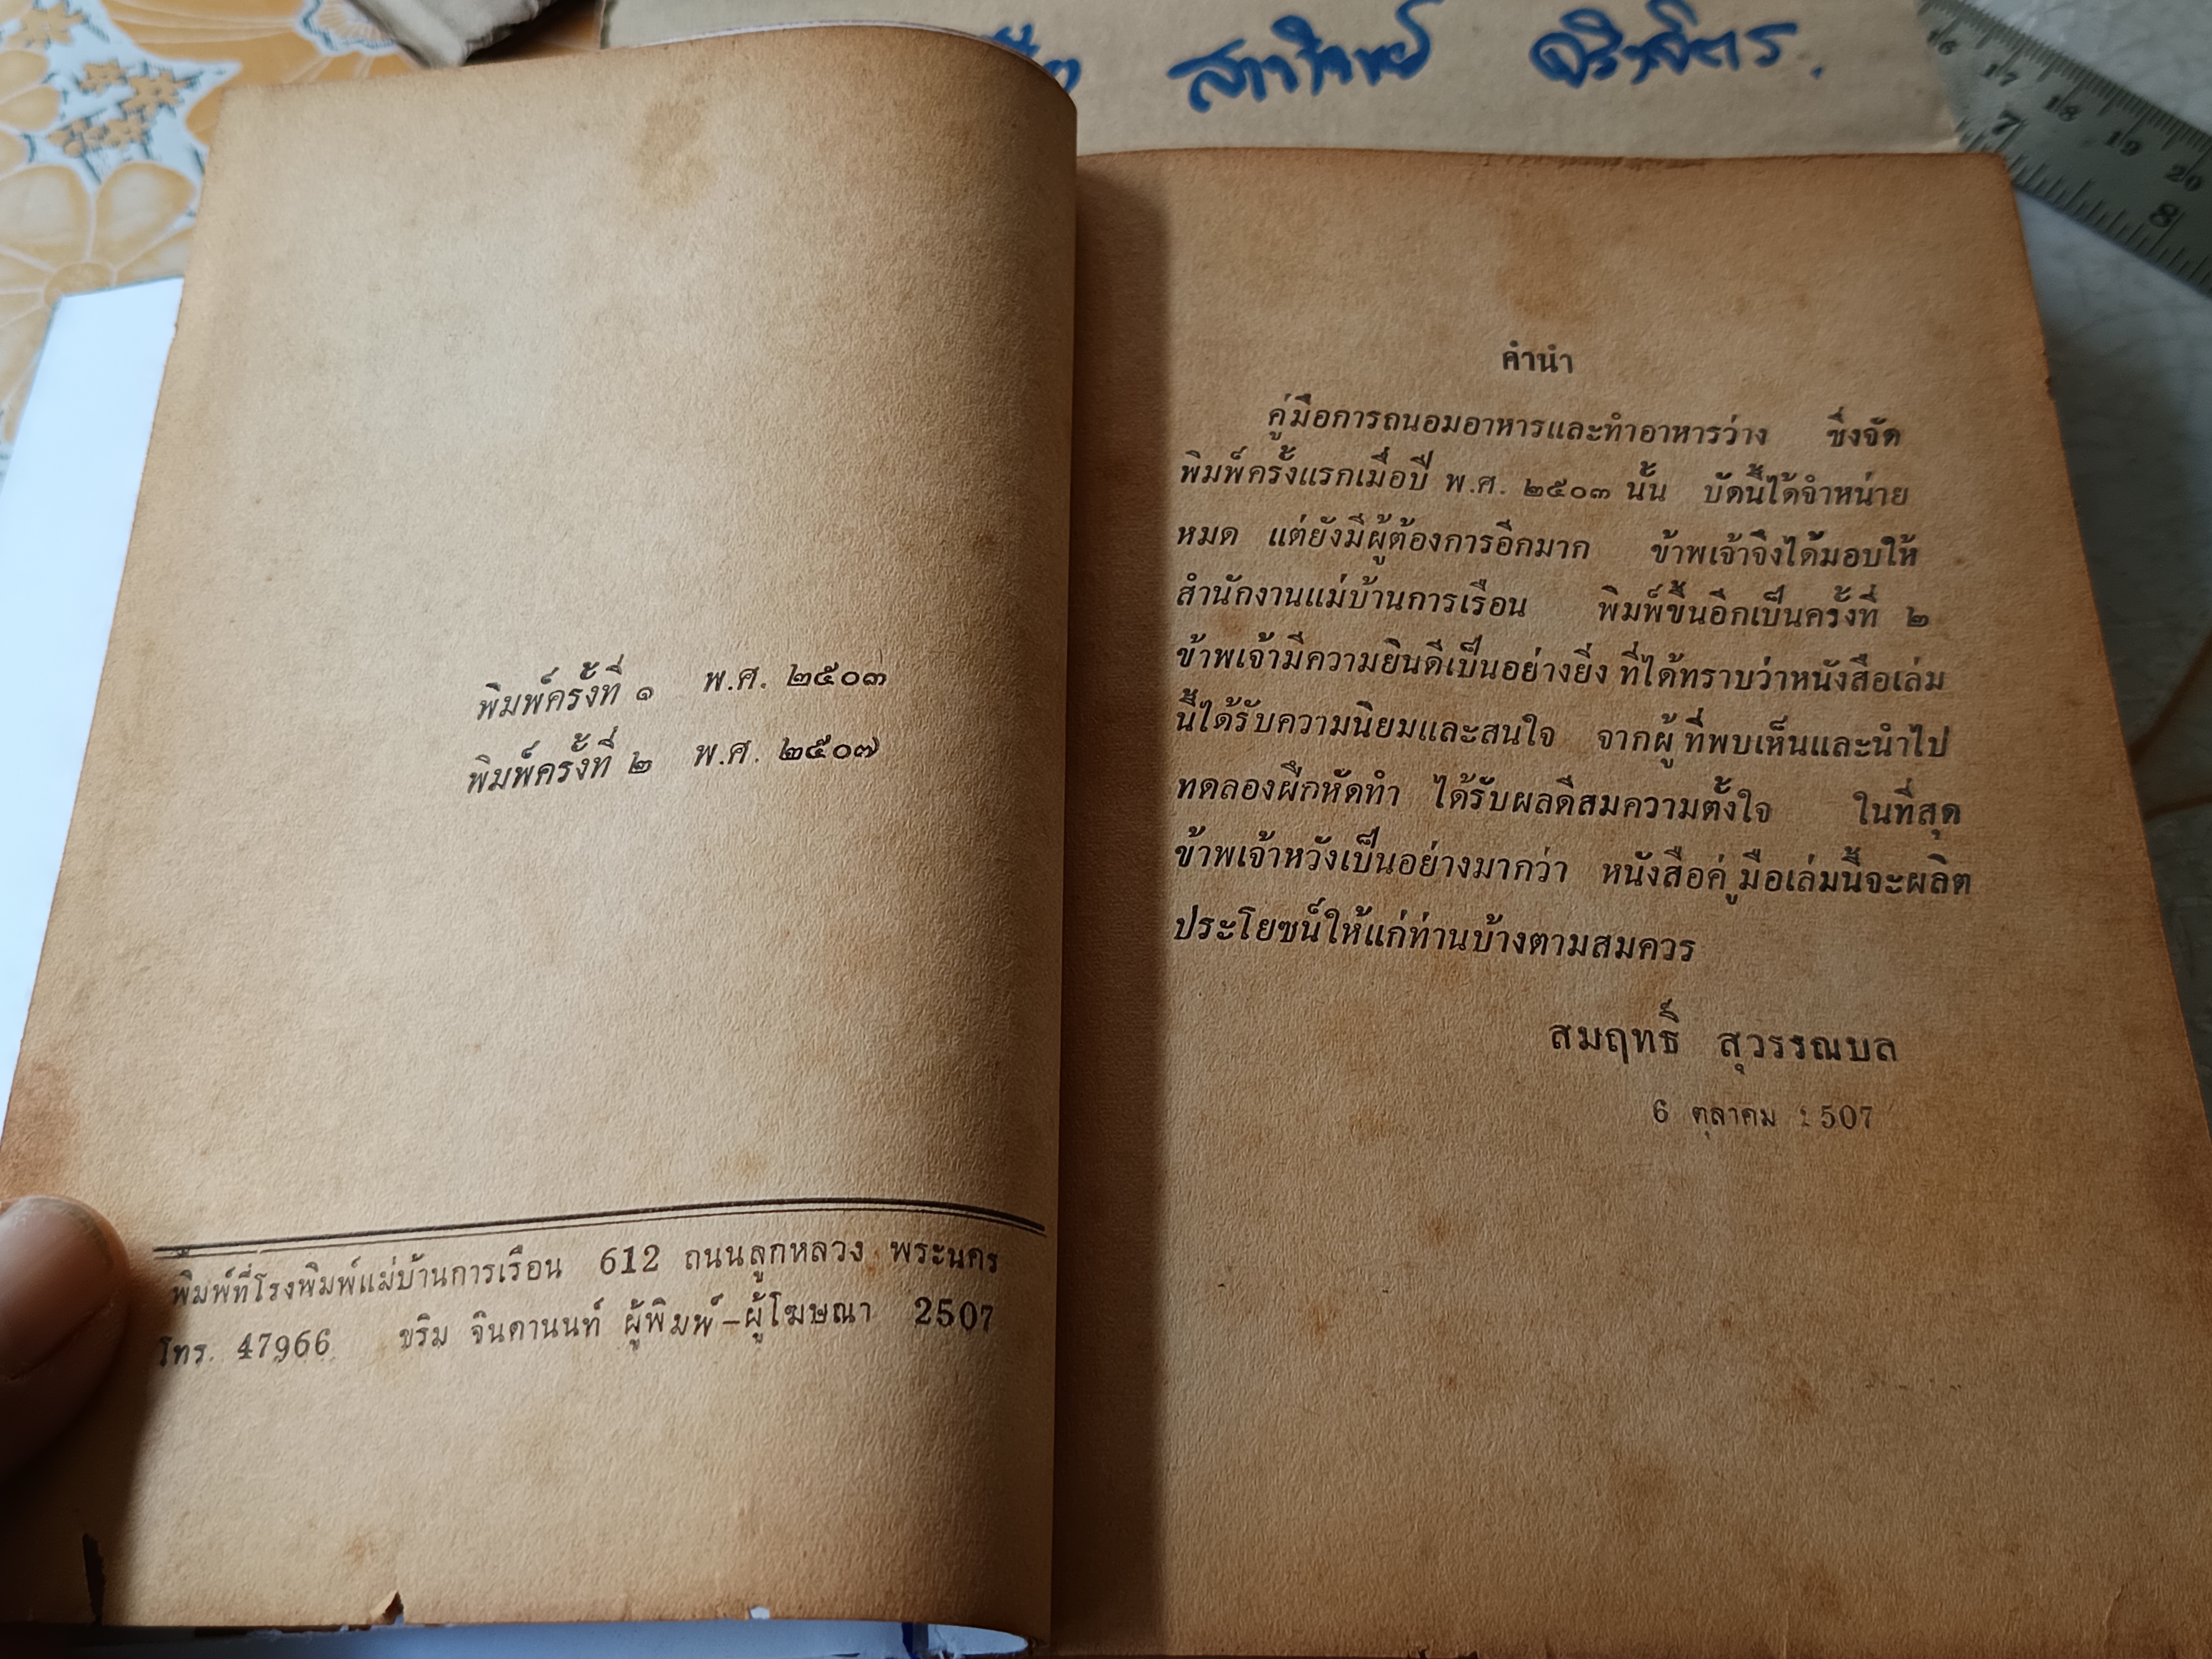 พิมพ์ครั้งที่ ๑ พ.ศ. ๒๕๐๓
พิมพ์ครั้งที่ ๒ พ.ศ. ๒๕๐๗
พิมพ์ที่โรงพิมพ์แม่บ้านการเรือน 612 ถนนลูกหลวง พระนคร
โทร. 47966 ขริม จินดานนท์ ผู้พิมพ์-ผู้โฆษณา 2507
คำนำ
คู่มือการถนอมอาหารและทำอาหารว่าง ซึ่งจัด
พิมพ์ครั้งแรกเมื่อปี พ.ศ. ๒๕๐๓ นั้น บัดนี้ได้จำหน่าย
หมด แต่ยังมีผู้ต้องการอีกมาก ข้าพเจ้าจึงได้มอบให้
สำนักงานแม่บ้านการเรือน พิมพ์ขึ้นอีกเป็นครั้งที่ ๒
ข้าพเจ้ามีความยินดีเป็นอย่างยิ่ง ที่ได้ทราบว่าหนังสือเล่ม
นี้ได้รับความนิยมและสนใจ จากผู้ที่พบเห็นและนำไป
ทดลองฝึกหัดทำ ได้รับผลดีสมความตั้งใจ ในที่สุด
ข้าพเจ้าหวังเป็นอย่างมากว่า หนังสือคู่มือเล่มนี้จะผลิต
ประโยชน์ให้แก่ท่านบ้างตามสมควร
สมฤทธิ์ สุวรรณบล
6 ตุลาคม 2507
16 17 18 19 20
7 8